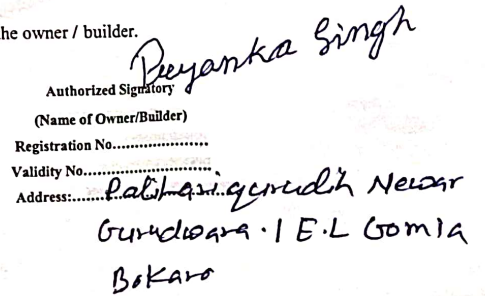 he owner / builder.
Priyanka Singh
Authorized Signatory
(Name of Owner/Builder)
Registration No.....................
Validity No.........................
Address:......Palihari gurudih Newar
Gurudwara. I E.L Gomia
Bokaro